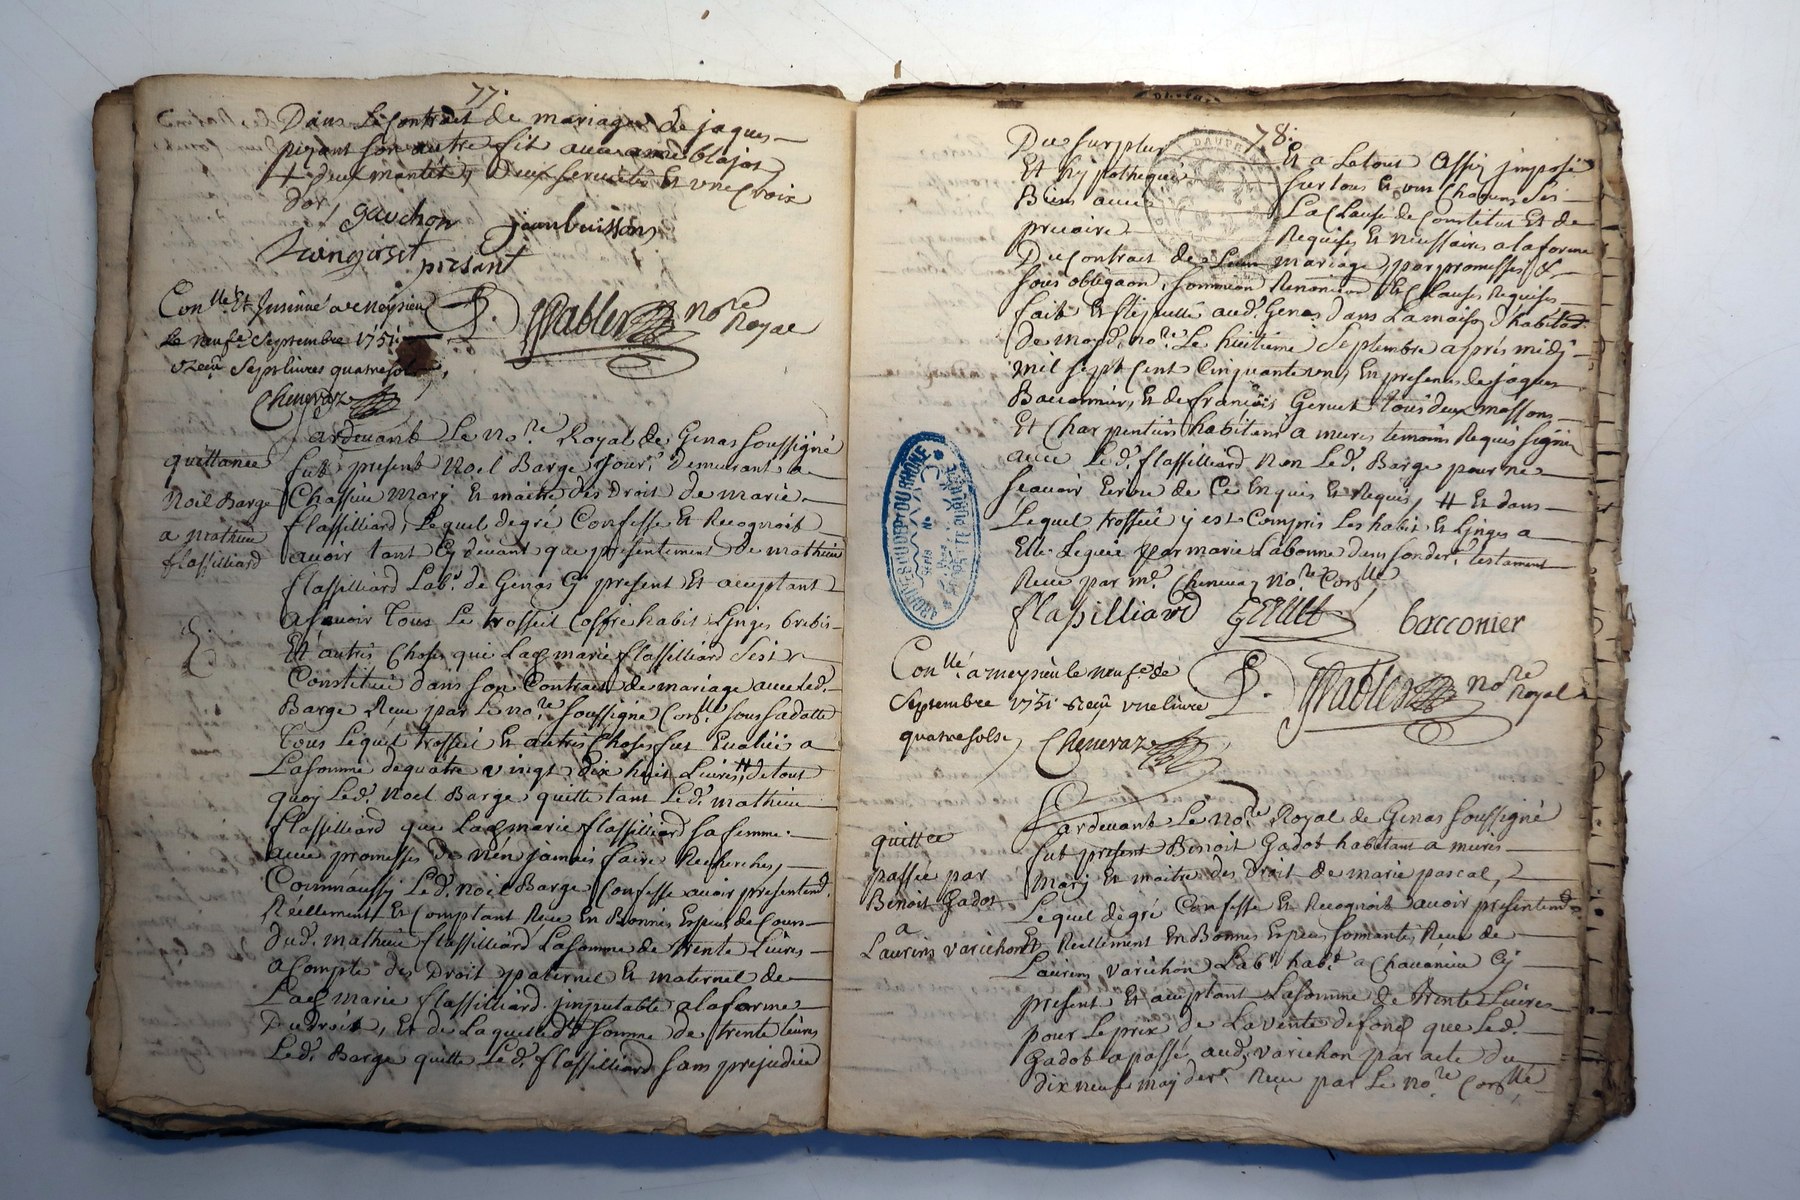 77.
Dans Le Contrat de mariage de jaques
pizant son autre fit avec anne blajot
+ deux mantils, Deux servietts Et une Croix
dor, gauchon jean buisson
pizant
Con.lle Et Insinué a Meysieu
Le neufe Septembre 1751
receu Sept livres quatre sols,
Cheneraz
P. JPabler no.re Royal
Pardevant Le No.re Royal de Genas soussigné
quittance
Noel Barge
a mathieu
flassilliard
fut present Noel Barge Jour.r Demeurant a
Chassieu Mary Et maitre des Droit de marie
flassilliard, Lequel de gré Confesse Et Recognoit
avoir tant Cy devant que presentement De mathieu
flassilliard Lab.r de Genas Cy present Et aceptant
a scavoir Tous Le trosseil Coffre habis Linges brebis
Et autres Choses que Lad marie flassilliard Sest
Constituée dans son Contrat de mariage avec Led.
Barge Receu par Le no.re soussigné Con.lle sous sa datte
Tous Lequel trosseil Et autres Choses fut Evalué a
La somme de quatre vingt dix huit Livres, # de tout
quoy Led. Noel Barge quitte tant Led. mathieu
flassilliard que Lad marie flassilliard sa femme
avec promesses de n'en jamais faire Recherches,
Comm'aussy Led. Noel Barge Confesse avoir presentem.t
Réellement Et Comptant Receu En Bonnes Especes de Cours
dud. mathieu flassilliard La somme de trente Livres
a Compte des Droit paternel Et maternel de
Lad marie flassilliard imputable a la forme
Du Droit, Et de Laquelle d. somme de trente livres
Led. Barge quitte Led. flassilliard sans prejudice
78.
Du surplus Et a Le tout Assis, imposé
Et hipothequé sur tous Et uns Chacuns ses
Biens avec La Clause de Constitut Et de
precaire Requises Et neussaires a la forme
Du Contrat de Leur mariage, par promesses &
sous obligaon, soumission Renonciaon Et Clauses Requises
fait Et stipullé aud. Genas dans La maison d'habitaon
de moyd. no.re Le huitieme Septembre aprés midy
mil sept Cent Cinquante un, En presence de jaques
Bacconnier, Et de francois Geruet tous deux massons
Et Charpentiers habitans a mures temoins Requis signés
avec Led. flassilliard Non Led. Barge pour ne
scavoir Ecrire de Ce Enquis Et Requis, # Et dans
Lequel trosseil y est Compris Les habis Et Linges a
Elle Legueé par marie Labonne dans son der.r testament
Receu par m.e Cheneraz No.re Con.lle
flassilliard geruet bacconier
Con.lle a meysieu le neufe de
Septembre 1751 Receu une livre
quatre sols, Cheneraz
P. JPabler no.re Royal
Pardevant Le No.re Royal de Genas soussigné
quittce
passée par
Benoit Gadot
a
Laurens varichon
fut present Benoit Gadot habitant a mures
Mary Et maitre des Droit de marie pascal,
Lequel de gré Confesse Et Recognoit avoir presentem.t
Et Réellement En Bonnes Especes sonnantes Receu de
Laurens varichon Lab.r hab.t a Chavanieu Cy
present Et aceptant La somme de trente Livres
pour Le prix de La vente de fond que Led.
Gadot a passé aud. varichon par acte du
dix neufe may der.r Receu par Le no.re Con.lle